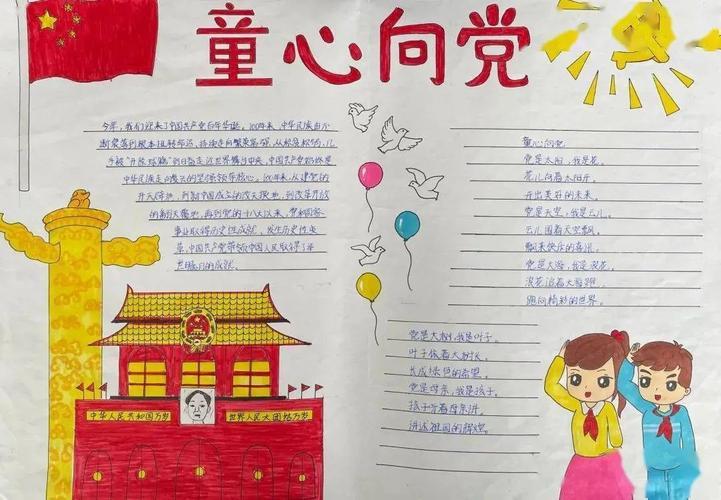 童心向党
今年,我们迎来了中国共产党百年华诞。100年来,中华民族由不
断衰落到根本扭转命运,持续走向繁荣富强。从积贫积弱、几
乎被“开除球籍”到日益走近世界舞台中央,中国共产党始终是
中华民族走向复兴的坚强领导核心。100年来,从建党的
开天辟地,到新中国成立的改天换地,到改革开放
的翻天覆地,再到党的十八大以来,党和国家
事业取得历史性成就、发生历史性变
革,中国共产党带领中国人民取得了举
世瞩目的成就。
中华人民共和国万岁
世界人民大团结万岁
童心向党
党是太阳,我是花。
花儿向着太阳开,
开出美好的未来。
党是天空,我是云儿。
云儿围着天空飘,
飘来快乐的喜讯。
党是大海,我是浪花。
浪花追着大海跑,
跑向精彩的世界。
党是大树,我是叶子。
叶子依着大树长,
长成绿色的希望。
党是母亲,我是孩子。
孩子听着母亲讲,
讲述祖国的辉煌。